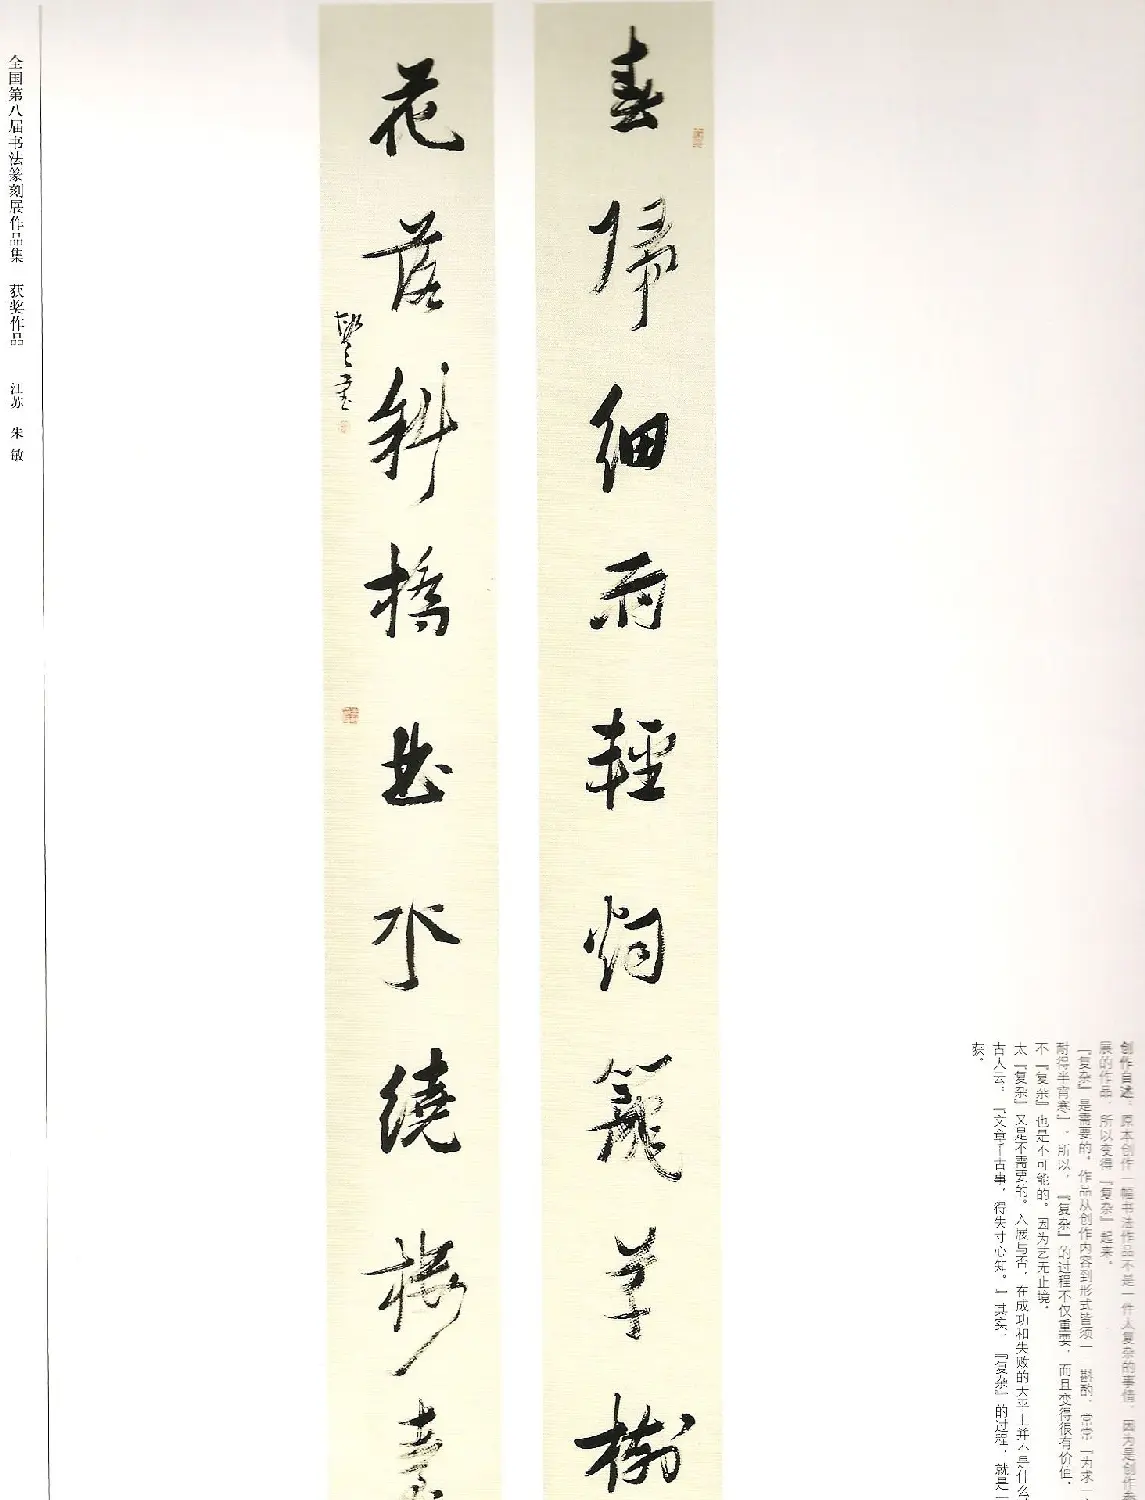 春歸細雨輕烟籠草樹
花落斜橋曲水繞樓臺
全国第八届书法篆刻展作品集 获奖作品 江苏 朱敏
创作自述：原本创作一幅书法作品不是一件太复杂的事情，因为是创作参
展的作品，所以变得『复杂』起来。
『复杂』是需要的，作品从创作内容到形式皆须一一斟酌，常常『为求一
耐得半宵寒』，所以，『复杂』的过程不仅重要，而且变得很有价值。
不『复杂』也是不可能的。因为艺无止境。
太『复杂』又是不需要的。入展与否，在成功和失败的天平上并不是什么
古人云：『文章千古事，得失寸心知。』其实，『复杂』的过程，就是一
获。